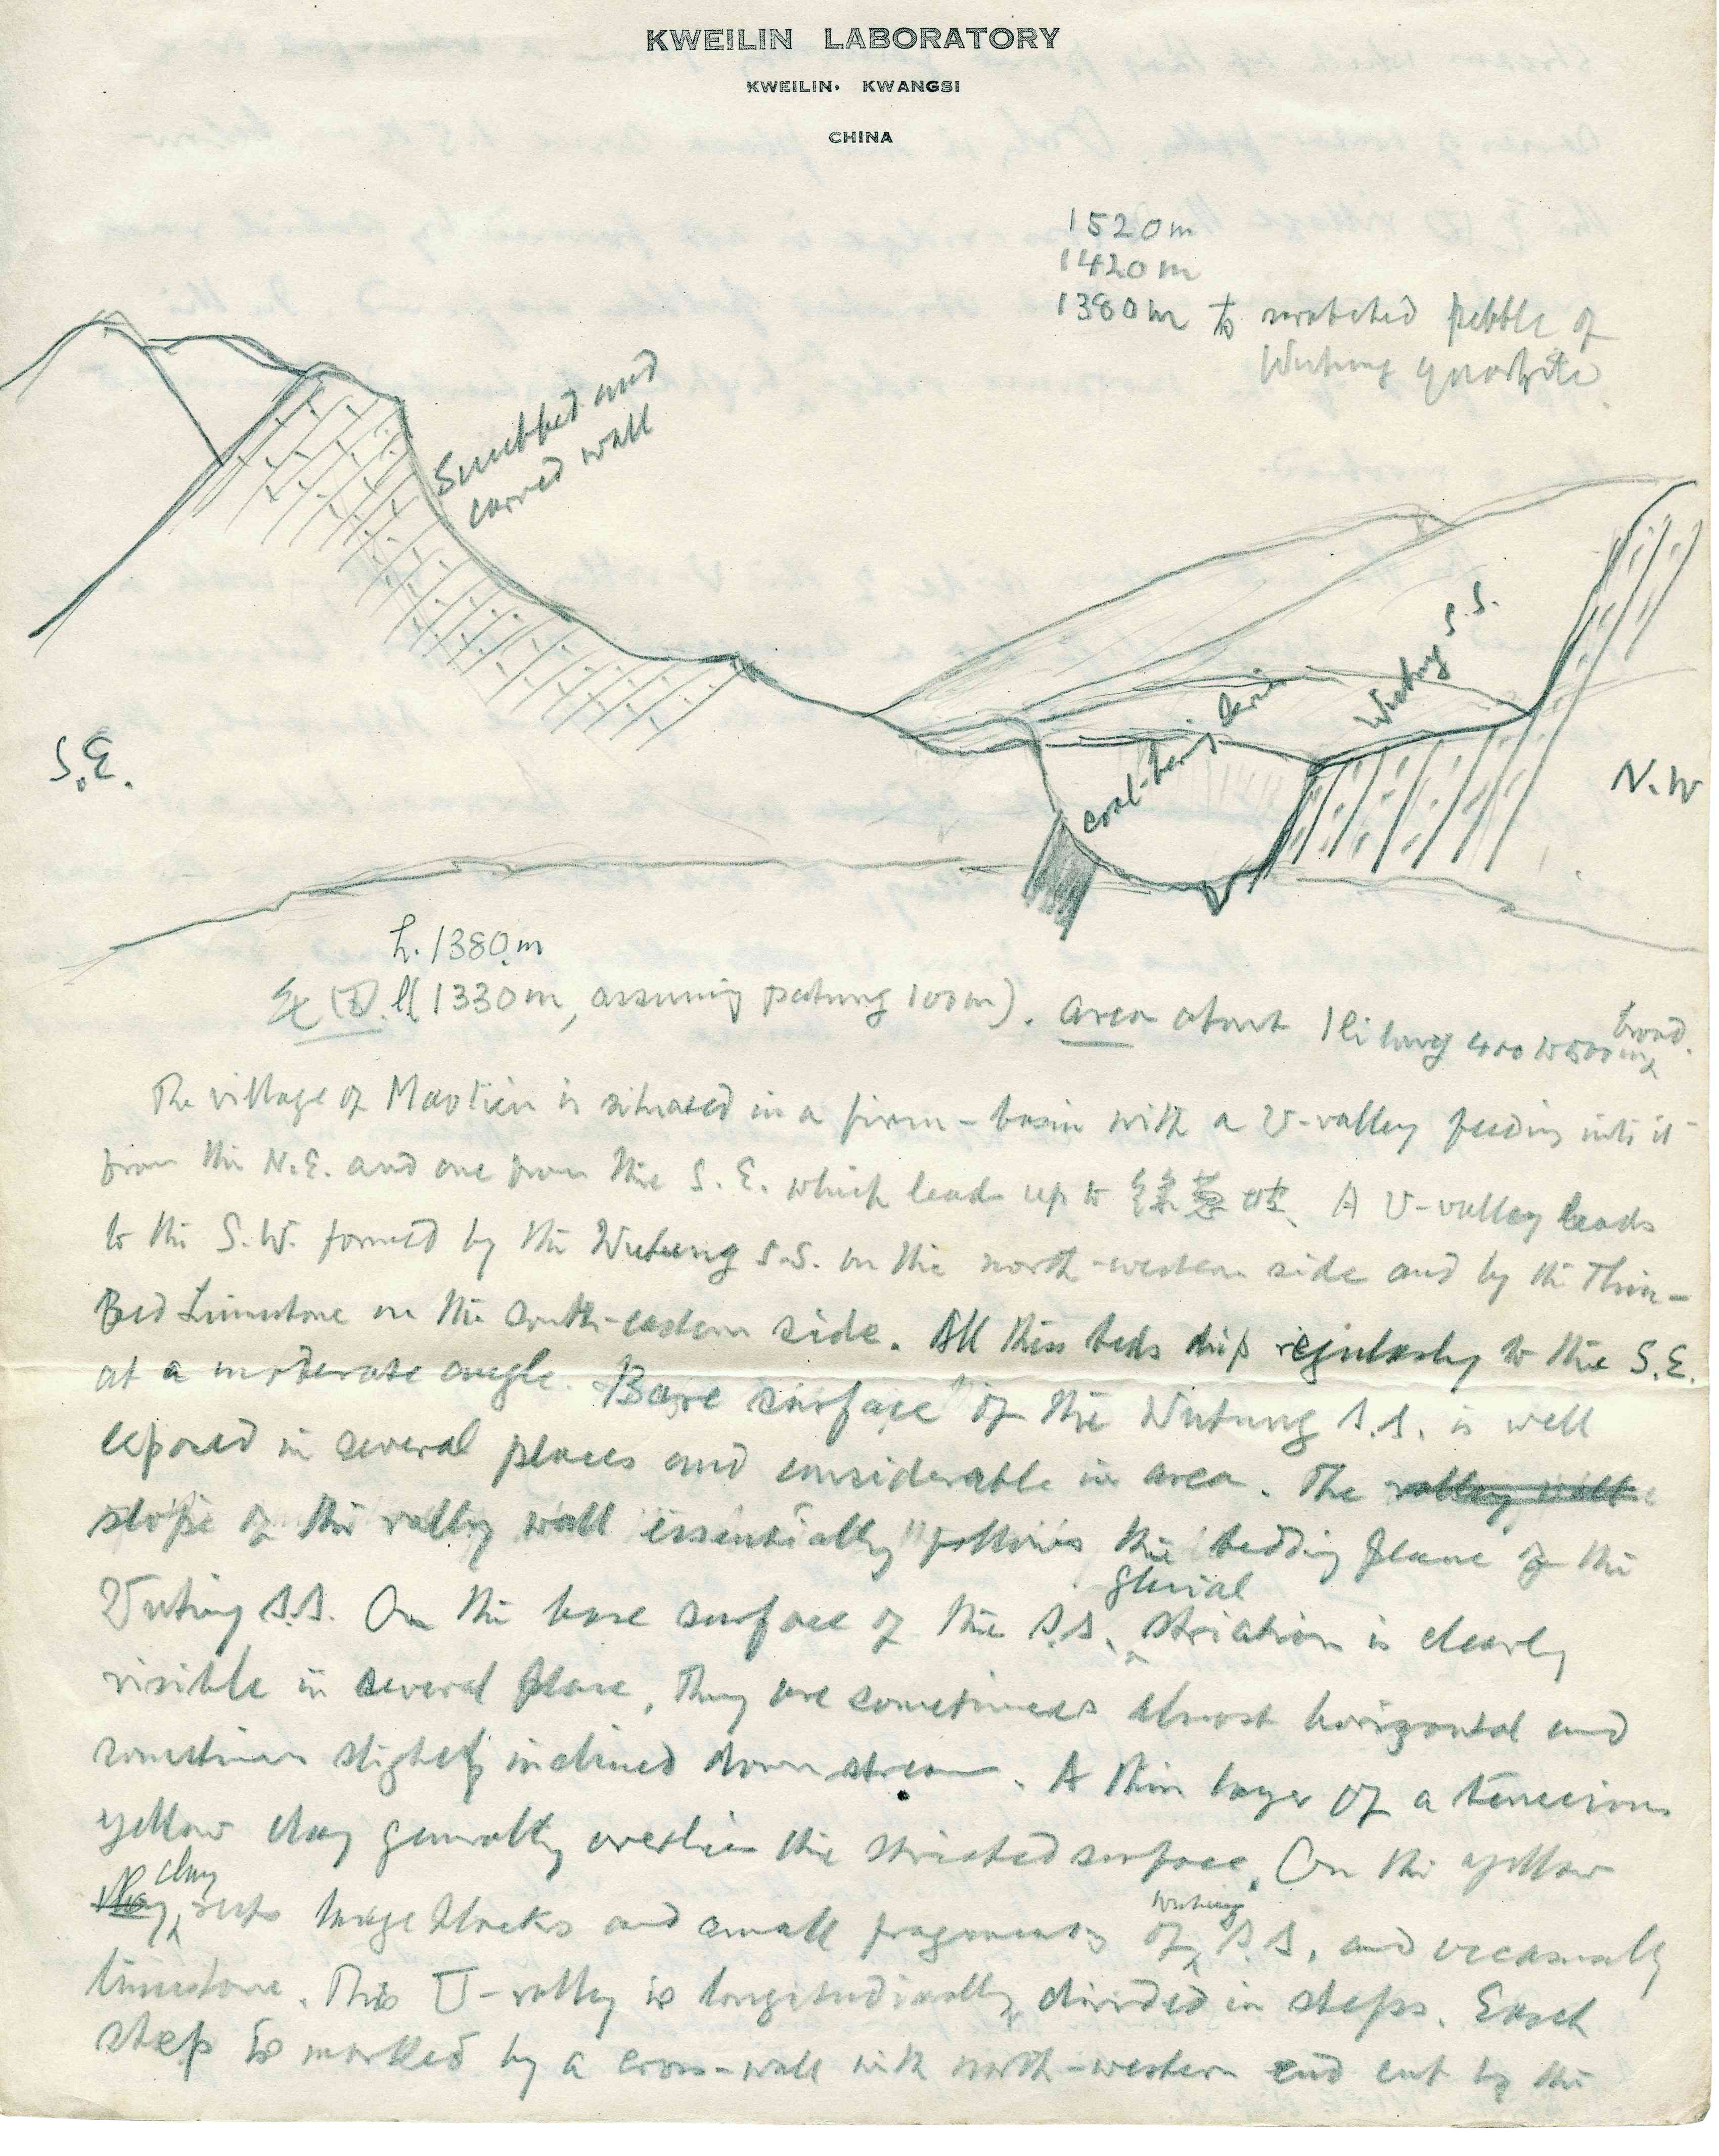 KWEILIN LABORATORY
KWEILIN, KWANGSI
CHINA
1520m
1420m
1380m to scratched pebble of
Wutung quartzite
Snubbed and
carved wall
Wutung S.S.
coal-bearing series
S.E.
N.W
h. 1380m
田 1330m, assuming patung 100m). Area about 1 li long 400 to 500m broad.
The village of Maotien is situated in a firn-basin with a U-valley feeding into it
from the N.E. and one from the S.E. which leads up to A U-valley leads
to the S.W. formed by the Wutung S.S. on the north-western side and by the Thin-
Bed Limestone on the south-eastern side. All this beds dip regularly to the S.E.
at a moderate angle. Bare surface of the Wutung s.s. is well
exposed in several places and considerable in area. The valley wall
slope of the valley wall essentially follows the bedding plane of the
Wutung s.s. On the bare surface of the s.s. glacial striation is clearly
visible in several place. They are sometimes almost horizontal and
sometimes slightly inclined down stream. A thin layer of a tenacious
yellow clay generally overlies the striated surface. On the yellow
clay rests huge blocks and small fragments of Wutung s.s. and occasionally
limestone. This U-valley is longitudinally divided in steps. Each
step is marked by a cross-wall with north-western end cut by the